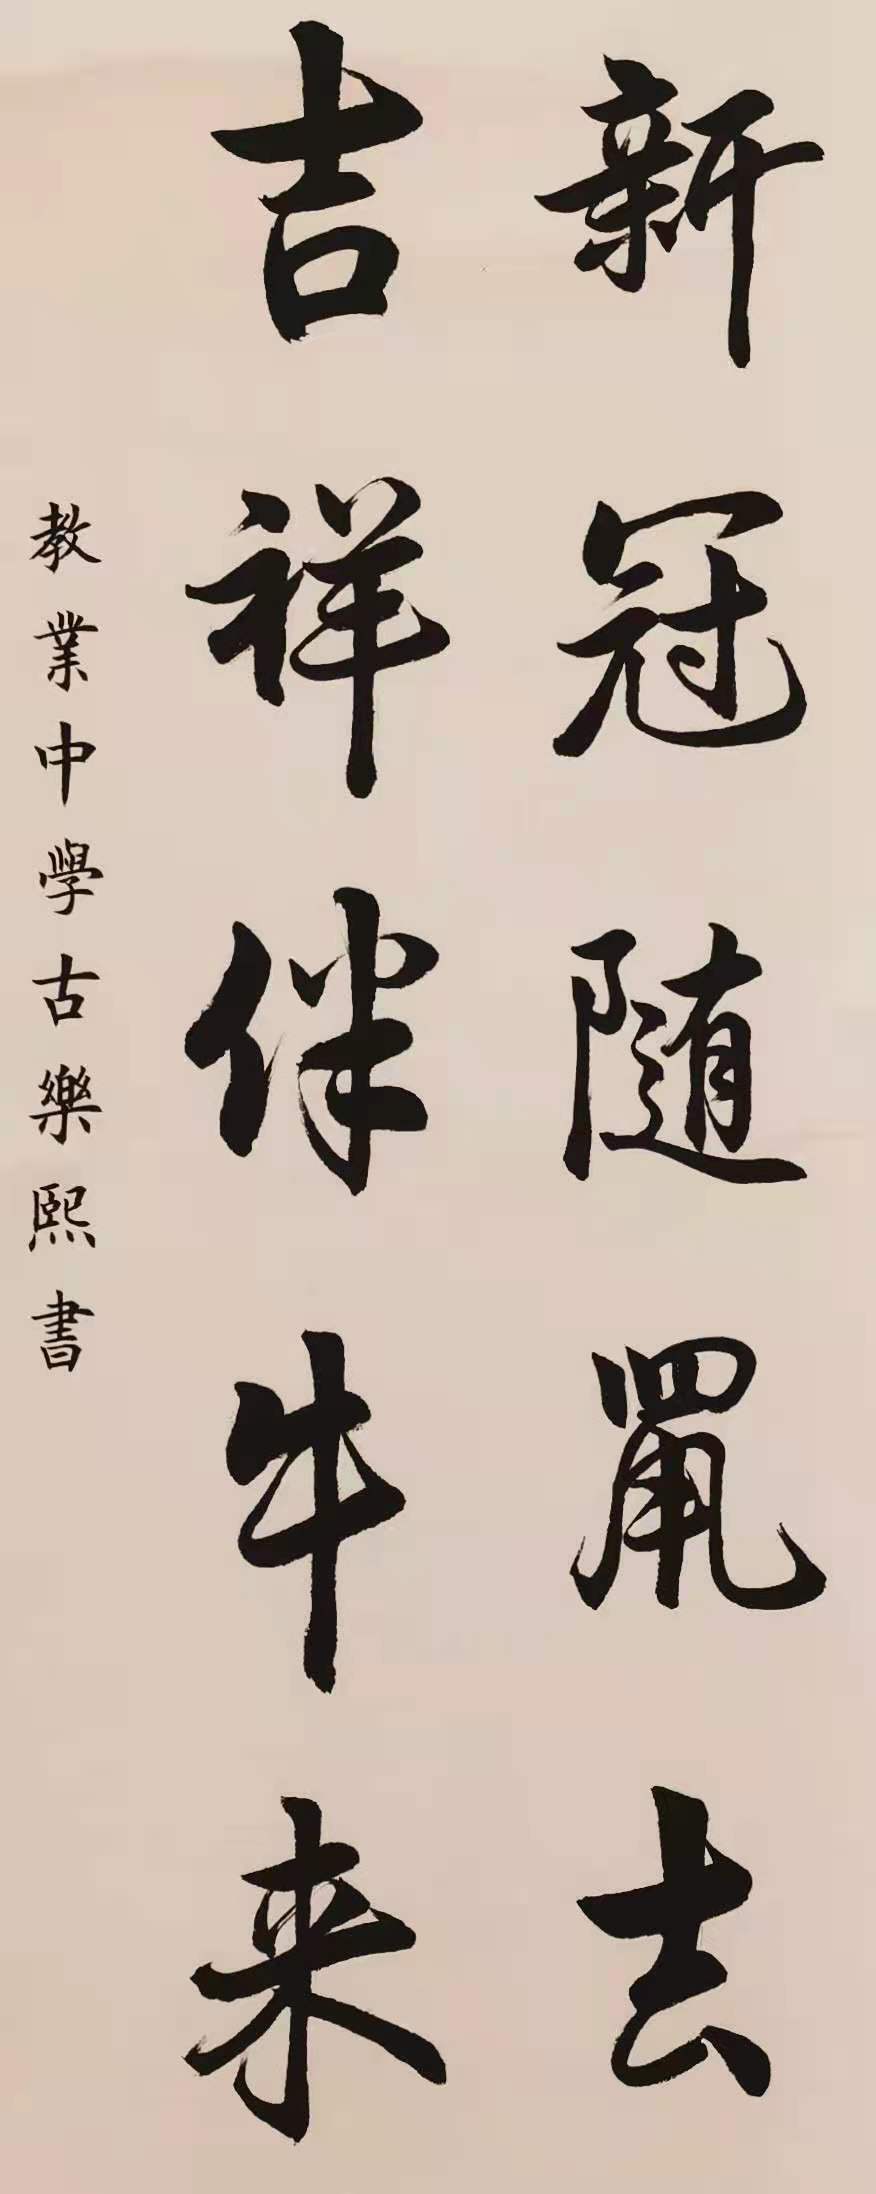 新冠随鼠去
吉祥伴牛来
教業中學古樂熙書